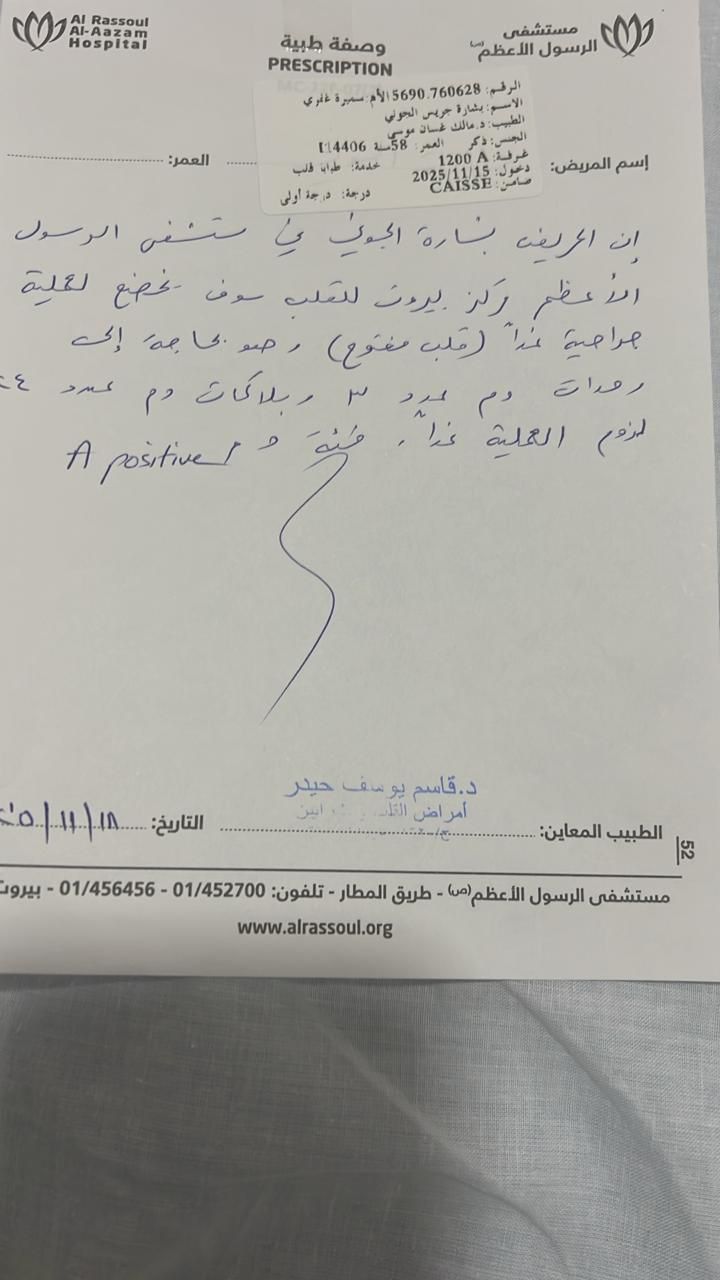 Al Rassoul
Al-Aazam
Hospital
وصفة طبية
PRESCRIPTION
مستشفى
الرسول الأعظم(ص)
الرقم: 5690.760628 الأم: سميرة غفري
الاسم: بشارة جريس الجوني
الطبيب: د. مالك غسان موسى
الجنس: ذكر العمر: 58سنة 14406
غرفة: 1200 A خدمة: طبابة قلب
دخول: 2025/11/15
ضامن: CAISSE درجة: درجة أولى
إسم المريض: العمر:
إن المريض بشارة الجوني في مستشفى الرسول
الأعظم مركز بيروت للقلب سوف يخضع لعملية
جراحية غداً (قلب مفتوح) وهو بحاجة إلى
وحدات دم عدد ٣ وبلاكات دم عدد ٤
لزوم العملية غداً. فئة دم A positive
د. قاسم يوسف حيدر
أمراض القلب
الطبيب المعاين: التاريخ: ١٨/١١/
52
مستشفى الرسول الأعظم(ص) - طريق المطار - تلفون: 01/452700 - 01/456456 - بيروت
www.alrassoul.org